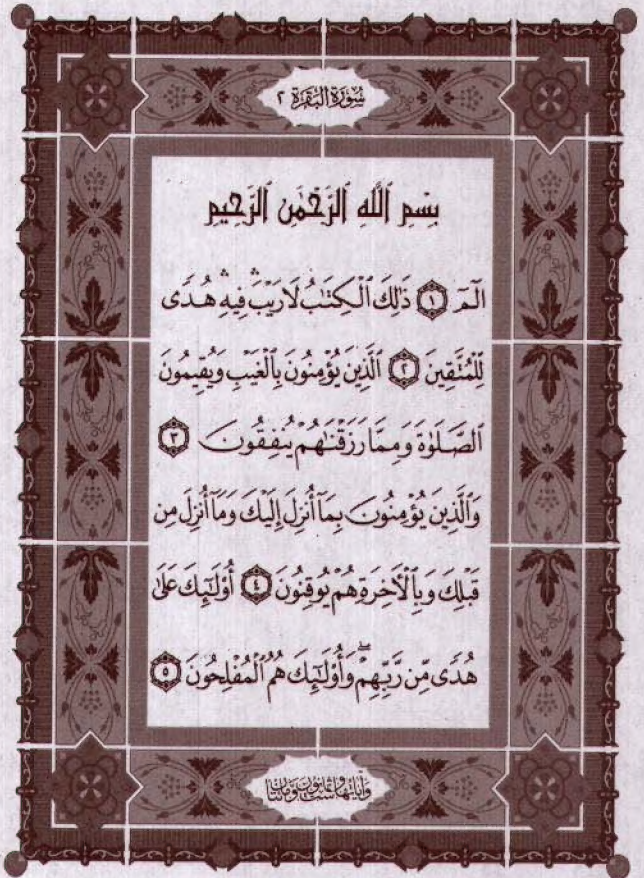 سُورَةُ البَقَرَةِ ٢
بِسْمِ ٱللَّهِ ٱلرَّحْمَٰنِ ٱلرَّحِيمِ
الٓمٓ ١ ذَٰلِكَ ٱلْكِتَٰبُ لَا رَيْبَۛ فِيهِۛ هُدًى
لِّلْمُتَّقِينَ ٢ ٱلَّذِينَ يُؤْمِنُونَ بِٱلْغَيْبِ وَيُقِيمُونَ
ٱلصَّلَوٰةَ وَمِمَّا رَزَقْنَٰهُمْ يُنفِقُونَ ٣
وَٱلَّذِينَ يُؤْمِنُونَ بِمَآ أُنزِلَ إِلَيْكَ وَمَآ أُنزِلَ مِن
قَبْلِكَ وَبِٱلْأَخِرَةِ هُمْ يُوقِنُونَ ٤ أُو۟لَٰٓئِكَ عَلَىٰ
هُدًى مِّن رَّبِّهِمْۖ وَأُو۟لَٰٓئِكَ هُمُ ٱلْمُفْلِحُونَ ٥
وَآيَاتُهَا سِتٌّ وَثَمَانُونَ وَمِائَتَانِ